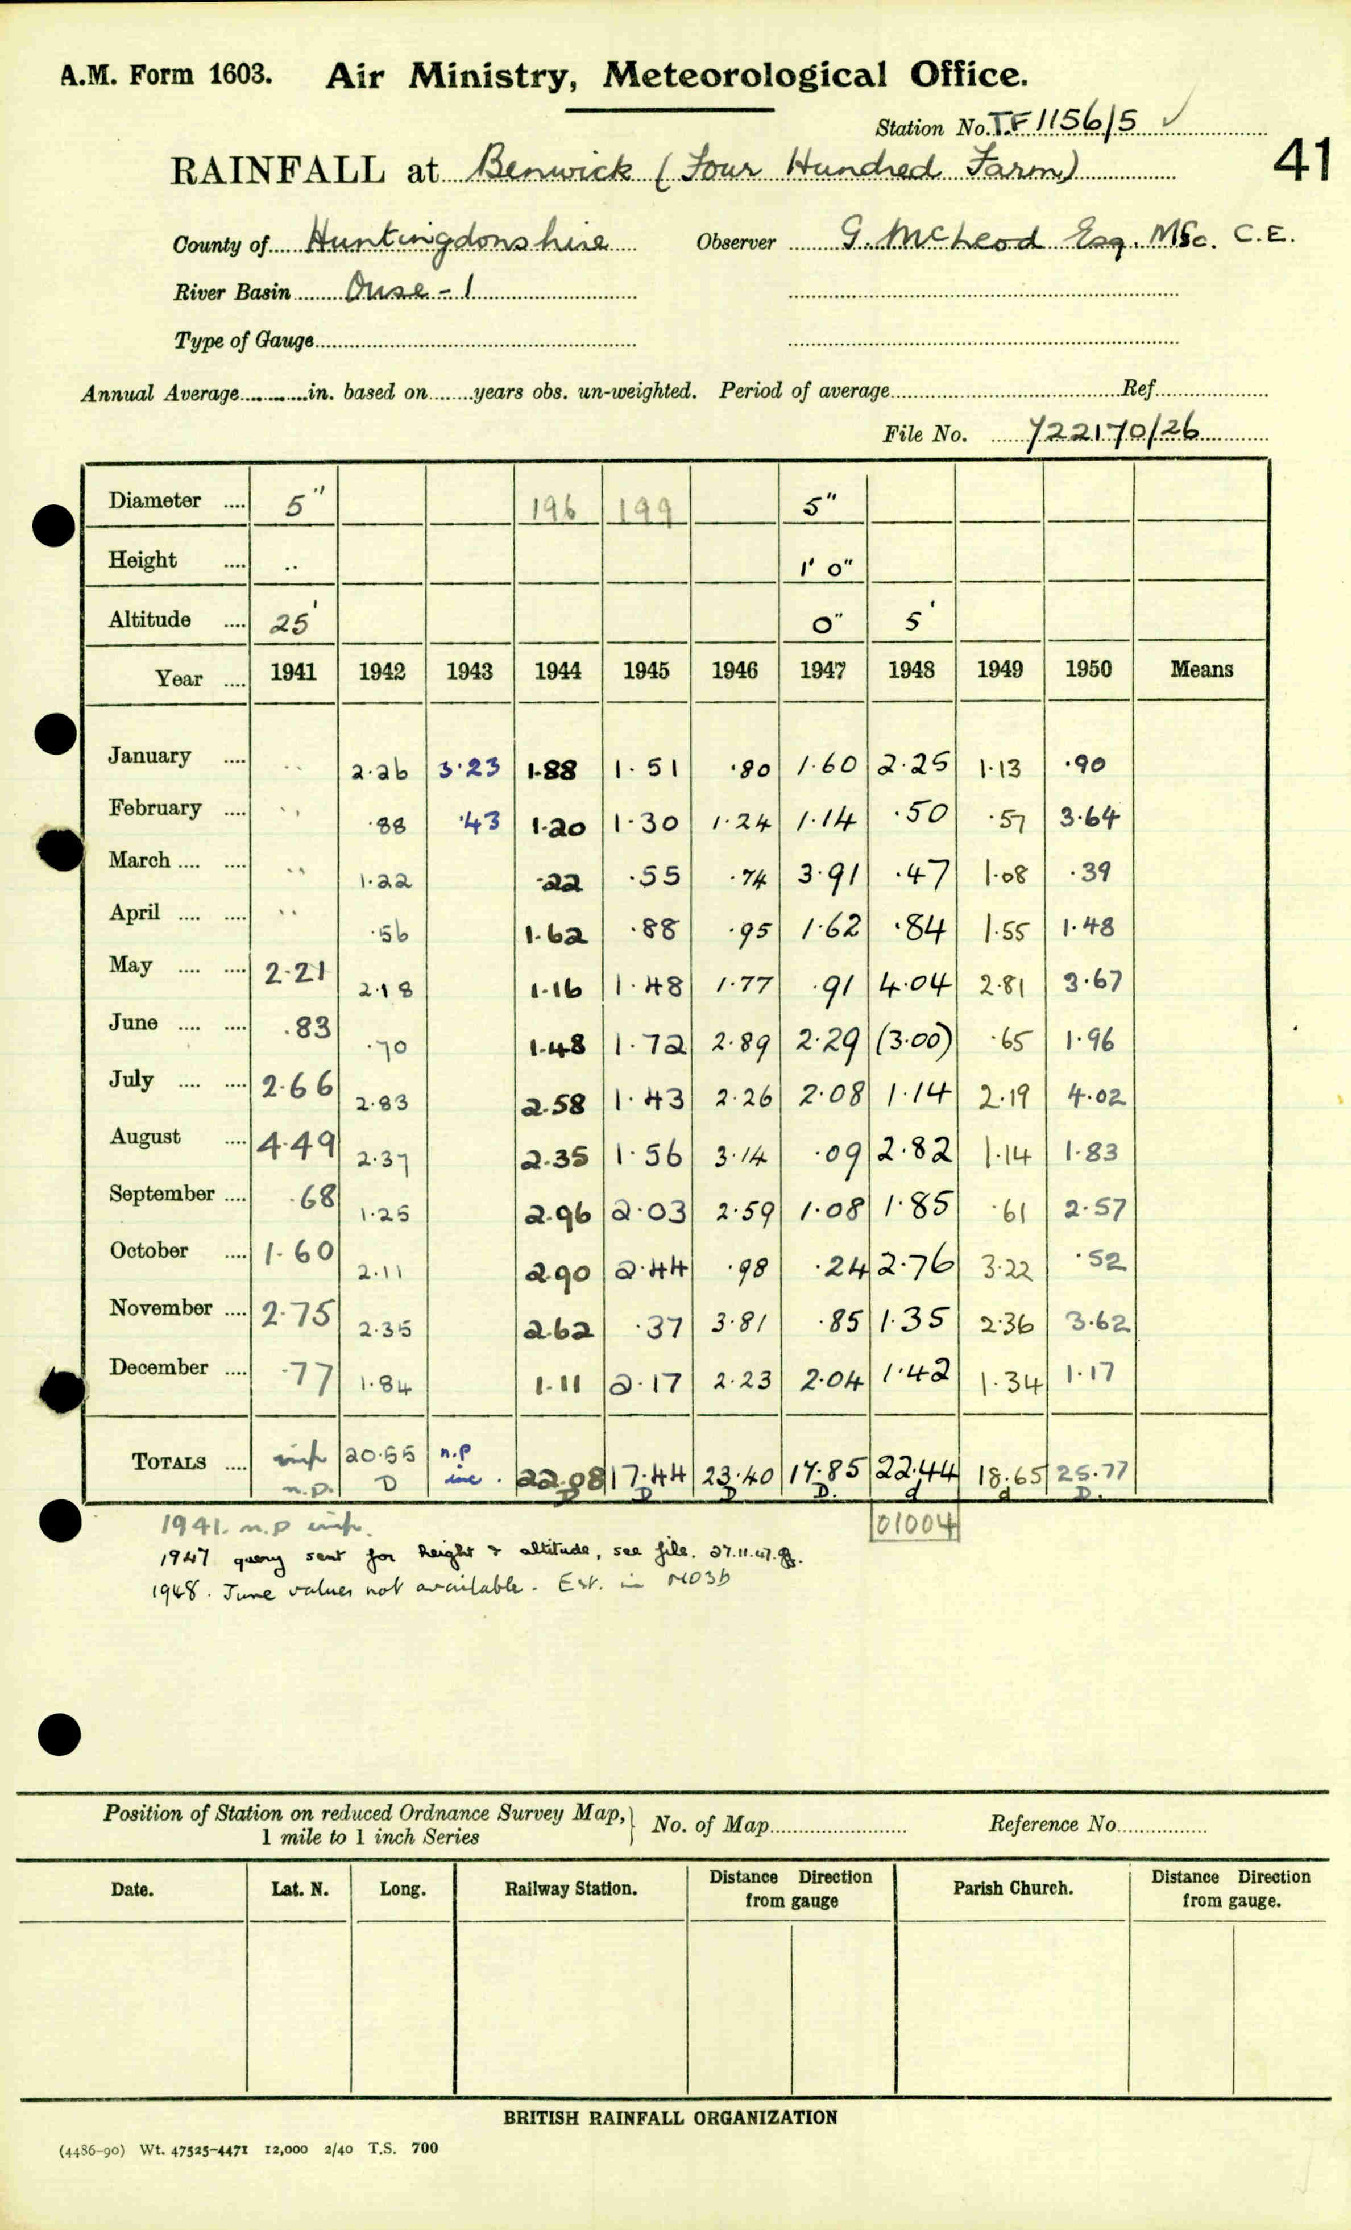 A.M. Form 1603. Air Ministry, Meteorological Office.
Station No. TF1156/5 ✓
RAINFALL at Benwick (Four Hundred Farm) 41
County of Huntingdonshire Observer G. McLeod Esq. MSc. C.E.
River Basin Ouse - 1
Type of Gauge
Annual Average in. based on years obs. un-weighted. Period of average Ref
File No. 722170/26
Diameter 5" 196 199 5"
Height .. 1' 0"
Altitude 25' 0" 5'
Year 1941 1942 1943 1944 1945 1946 1947 1948 1949 1950 Means
January .. 2.26 3.23 1.88 1.51 .80 1.60 2.25 1.13 .90
February .. .88 .43 1.20 1.30 1.24 1.14 .50 .57 3.64
March .. 1.22 .22 .55 .74 3.91 .47 1.08 .39
April .. .56 1.62 .88 .95 1.62 .84 1.55 1.48
May 2.21 2.18 1.16 1.48 1.77 .91 4.04 2.81 3.67
June .83 .70 1.48 1.72 2.89 2.29 (3.00) .65 1.96
July 2.66 2.83 2.58 1.43 2.26 2.08 1.14 2.19 4.02
August 4.49 2.37 2.35 1.56 3.14 .09 2.82 1.14 1.83
September .68 1.25 2.96 2.03 2.59 1.08 1.85 .61 2.57
October 1.60 2.11 2.90 2.44 .98 .24 2.76 3.22 .52
November 2.75 2.35 2.62 .37 3.81 .85 1.35 2.36 3.62
December .77 1.84 1.11 2.17 2.23 2.04 1.42 1.34 1.17
TOTALS inf 20.55 n.p 22.08 17.44 23.40 17.85 22.44 18.65 25.77
n.p. D inc. D D D D. d d D.
01004
1941. n.p inf.
1947 query sent for height & altitude, see file. 27.11.47.
1948. June values not available. Est. in MO3b
Position of Station on reduced Ordnance Survey Map, 1 mile to 1 inch Series No. of Map Reference No
Date. Lat. N. Long. Railway Station. Distance Direction from gauge Parish Church. Distance Direction from gauge.
BRITISH RAINFALL ORGANIZATION
(4486-90) Wt. 47525-4471 12,000 2/40 T.S. 700